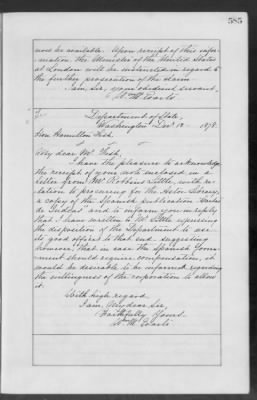 585
now be available. Upon receipt of this infor-
mation, the Minister of the United States
at London will be instructed in regard to
the further prosecution of the claim.
I am, Sir, your obedient servant,
Wm. M. Evarts
Department of State,
Washington, Dec. 10 1878.
Hon. Hamilton Fish,
My dear Mr. Fish,
I have the pleasure to acknowledge
the receipt of your note enclosed in a
letter from Mr. Robbins Little, with re-
lation to procuring for the Astor Library,
a copy of the Spanish publication Cartas
de Indias, and to inform you in reply
that I have written to Mr. Little expressing
the disposition of the Department to use
its good offices to that end, suggesting
however, that in case the Spanish Govern-
ment should require compensation, it
would be desirable to be informed regarding
the willingness of the corporation to allow
it.
With high regard,
I am, My dear Sir,
Faithfully Yours,
Wm. M. Evarts